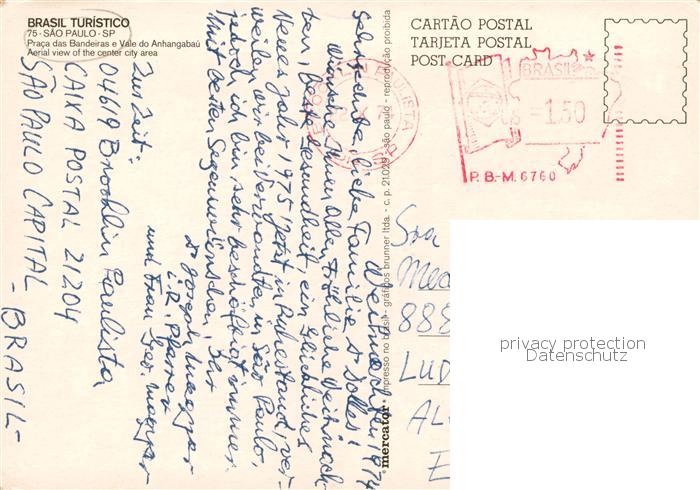 BRASIL TURÍSTICO
75 - SÃO PAULO - SP
Praça das Bandeiras e Vale do Anhangabaú
Aerial view of the center city area
CARTÃO POSTAL
TARJETA POSTAL
POST CARD
BRASIL
1.50
P.B.-M. 6760
BROOKLIN PAULISTA
mercator impresso no brasil - gráficos brunner ltda. - c. p. 21029 - são paulo - reprodução proibida
Weihnachten 1974
Sehr geehrte, liebe Familie Dr Dolles!
Wünsche Ihnen Allen Fröhliche Weihnach-
ten, Beste Gesundheit, ein Glückliches
Neues Jahr 1975! Jetzt in Ruhestand, ver-
weilen wir bei Verwandten in São Paulo,
jedoch ich bin sehr beschäftigt immer.
Mit besten Segenwünschen, Ihr
Dr Joseph Magyar
i.R. Pfarrer
und Frau Magyar
Zur Zeit:
04619 Brooklin Paulista
CAIXA POSTAL 21204
SÃO PAULO CAPITAL
- BRASIL -
888
LUD
AL
E
privacy protection
Datenschutz